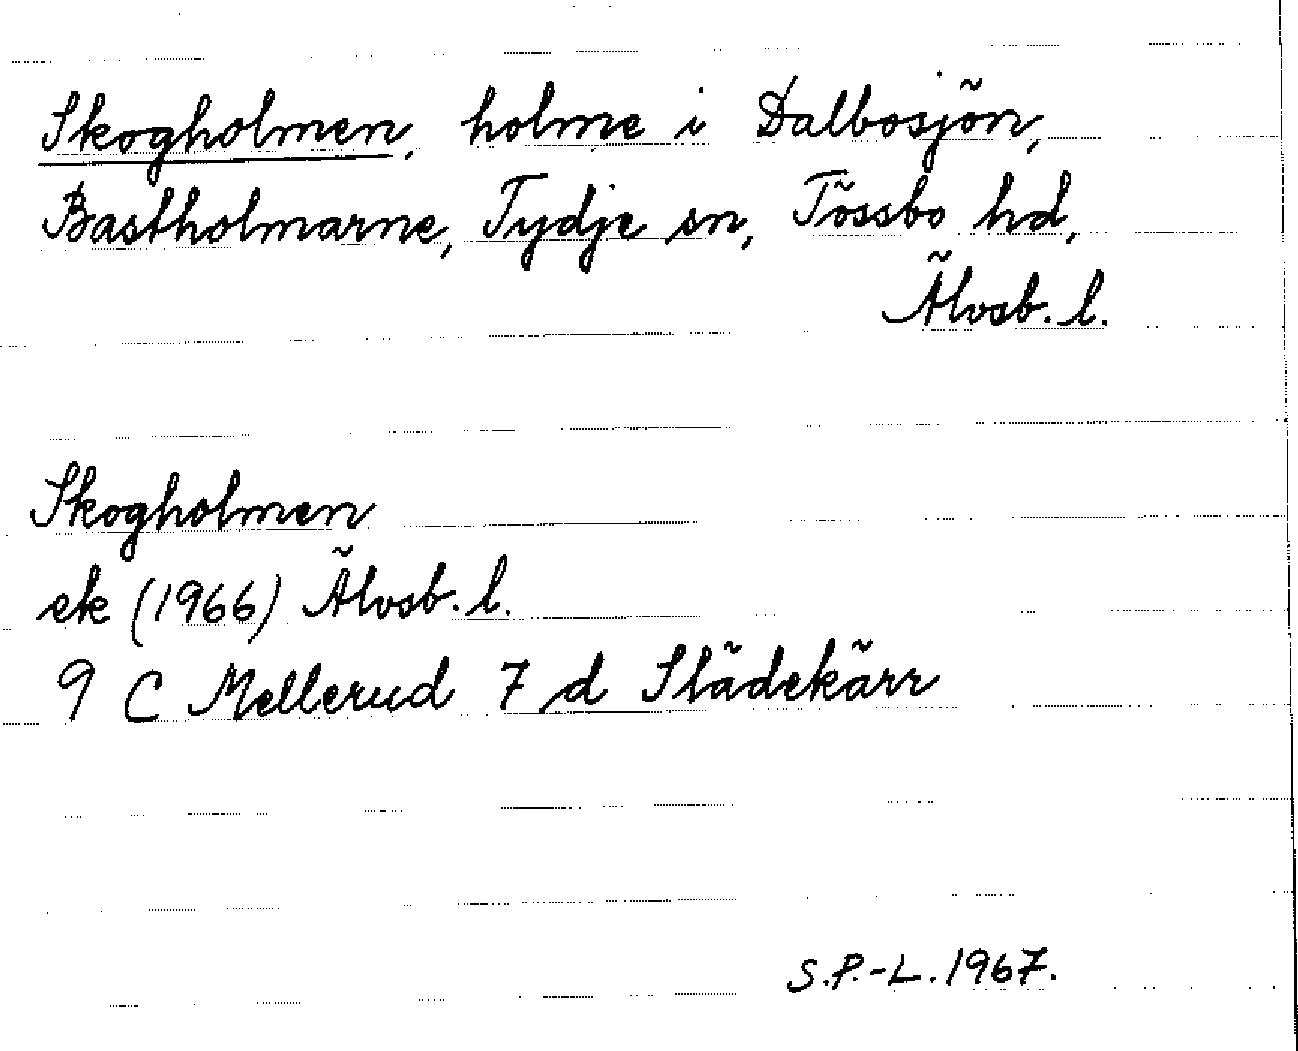 Skogholmen, holme i Dalbosjön,
Bastholmarne, Tydje sn, Tössbo hd,
Älvsb. l.
Skogholmen
ek (1966) Älvsb. l.
9 C Mellerud 7 d Slädekärr
S.P.-L. 1967.